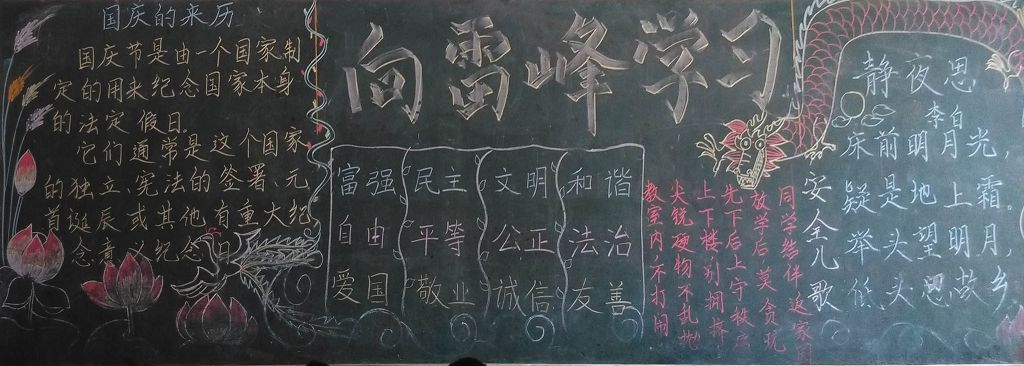 国庆的来历
国庆节是由一个国家制
定的用来纪念国家本身
的法定假日。
它们通常是这个国家
的独立、宪法的签署、元
首诞辰或其他有重大纪
念意义纪念日
向雷峰学习
富强 民主 文明 和谐
自由 平等 公正 法治
爱国 敬业 诚信 友善
安全儿歌
同学结伴返家园
放学后莫贪玩
先下后上守秩序
上下楼别拥挤
尖锐硬物不乱抛
教室内不打闹
静夜思
李白
床前明月光，
疑是地上霜。
举头望明月，
低头思故乡